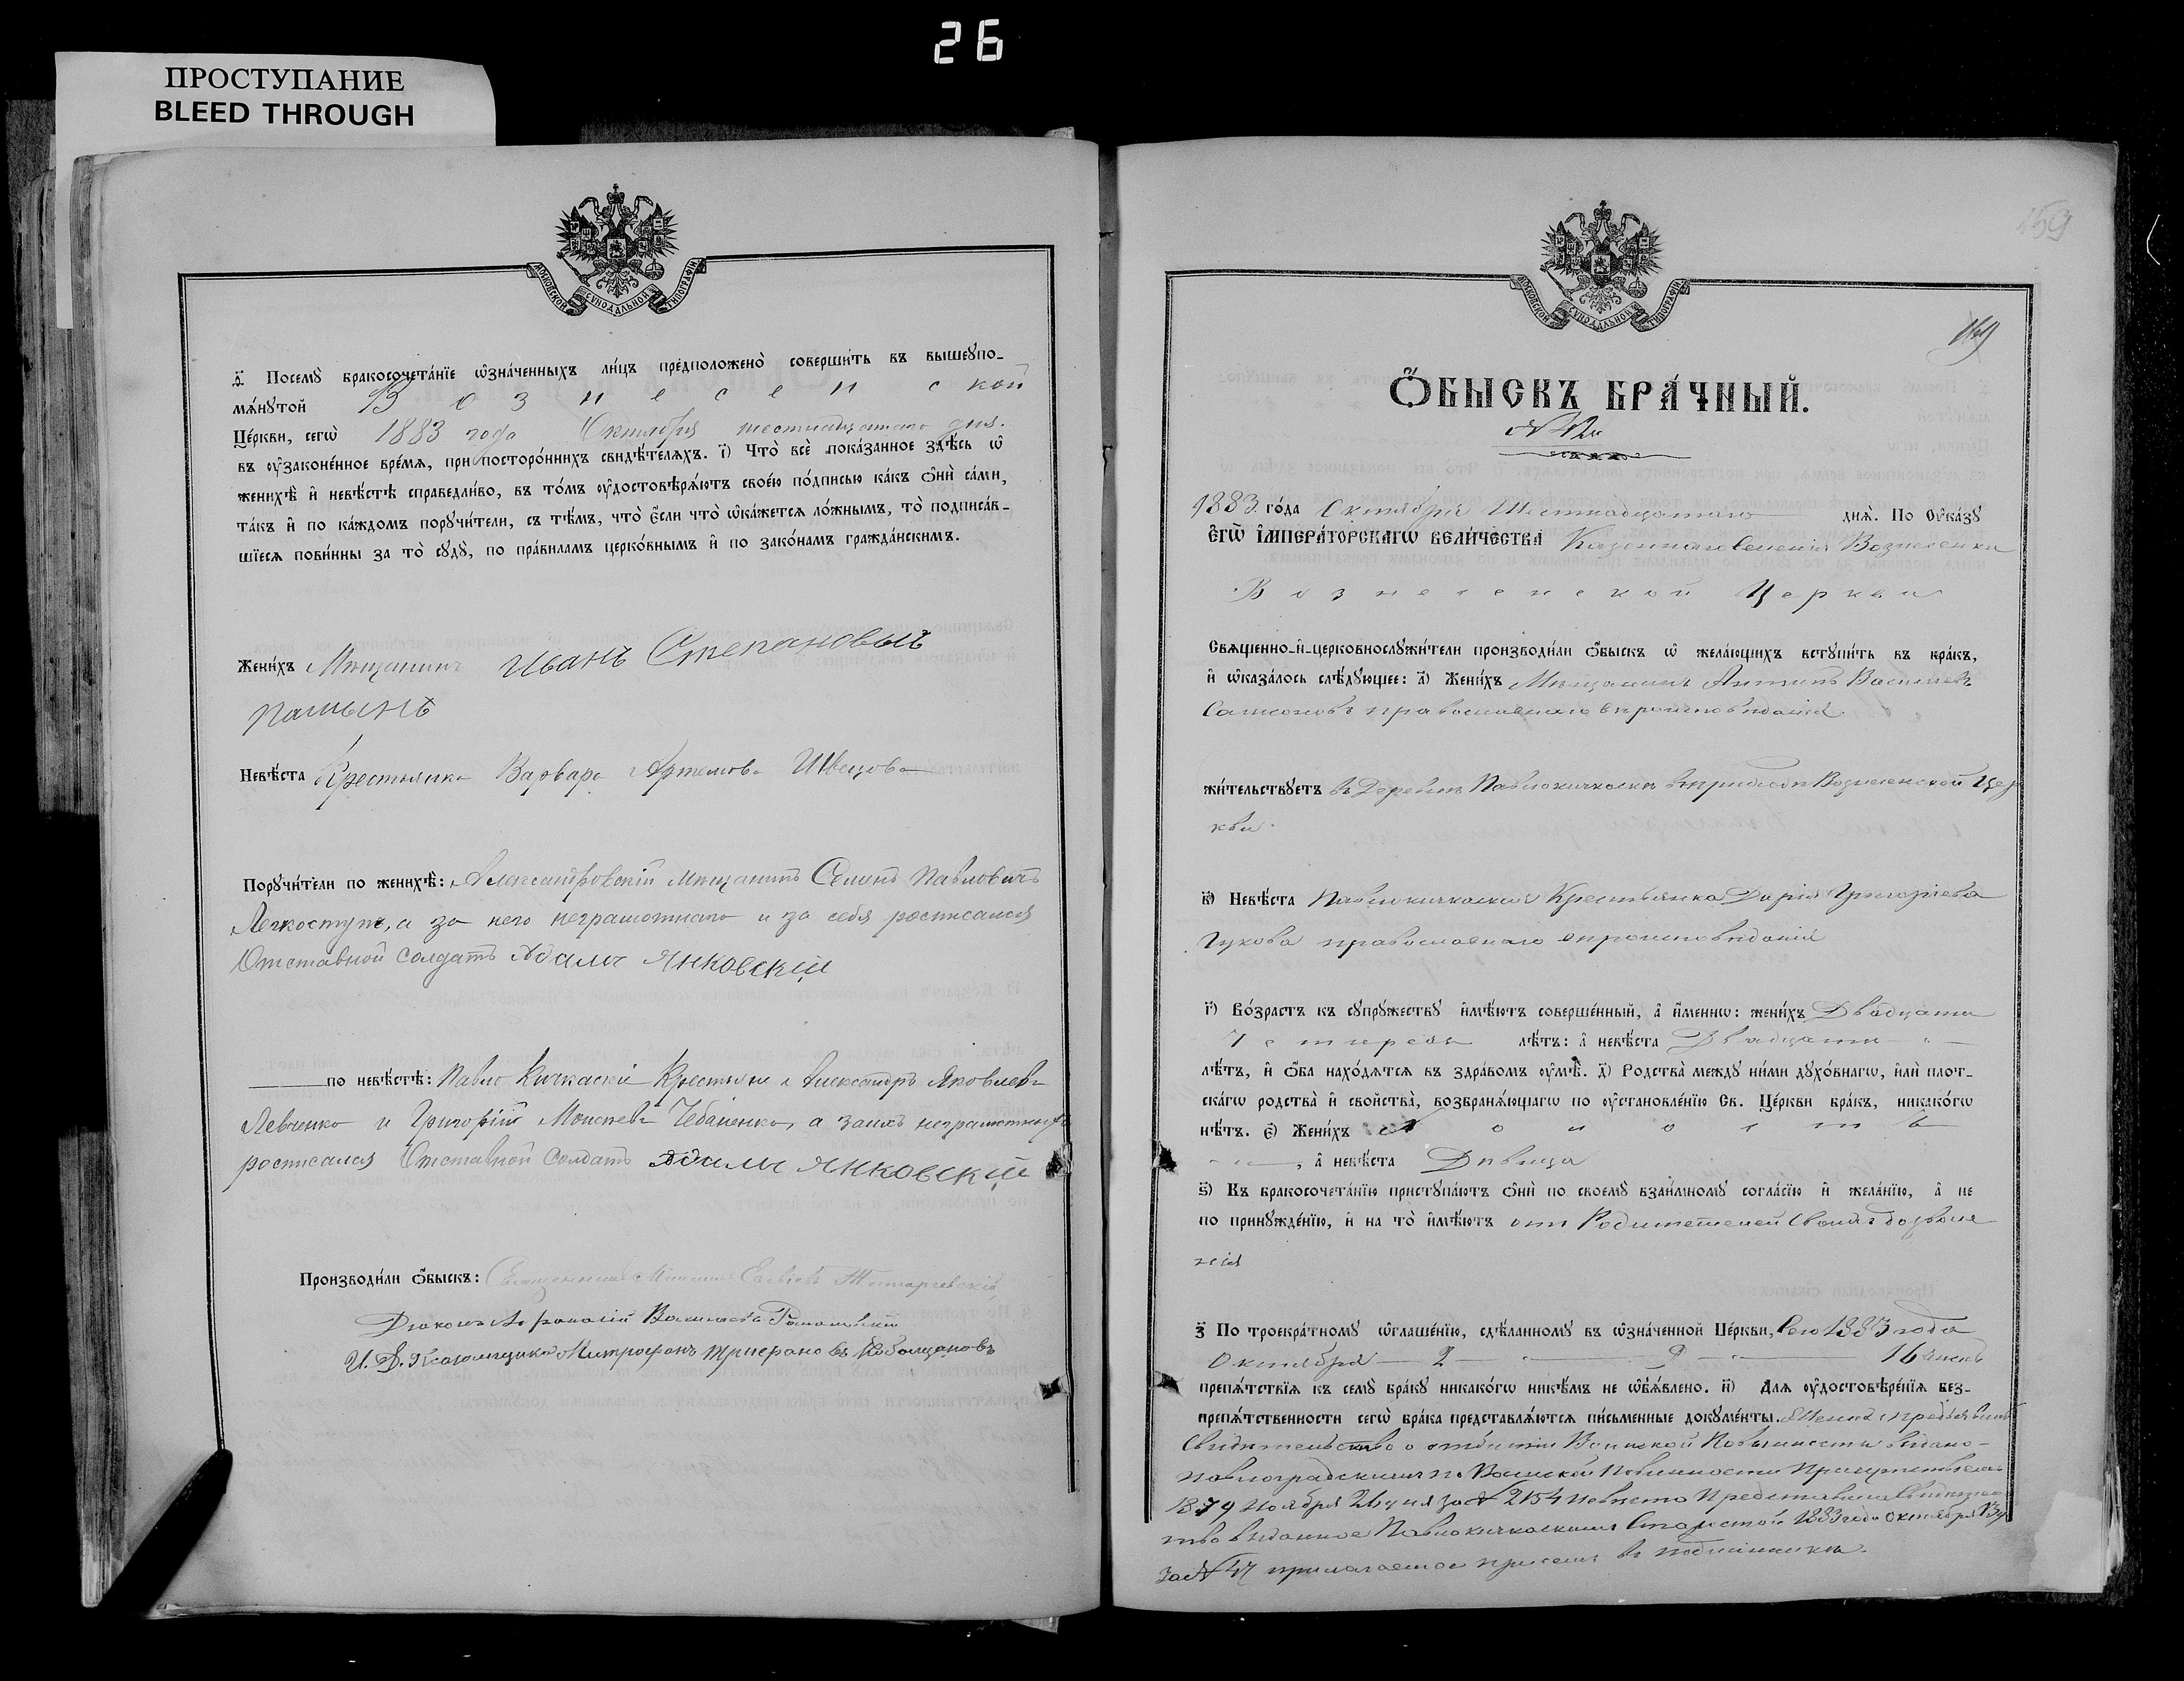 26
ПРОСТУПАНИЕ
BLEED THROUGH
МОСКОВСКОЙ СѴНОДАЛЬНОЙ ТИПОГРАФІИ
Посемꙋ̀ бракосочета́нїе ѡ҆зна́ченныхъ ли́цъ предположено̀ соверши́ть въ вышеꙋпо-
мѧ́нꙋтой Вознесенской
Це́ркви, сегѡ̀ 1883 года Октября шестнадцатаго дня.
въ оу҆зако́ненное вре́мѧ, при посторо́ннихъ свидѣ́телѧхъ. і҃) Что̀ всѐ пока́занное здѣ́сь ѡ҆
женихѣ̀ и҆ невѣ́стѣ справедли́во, въ то́мъ оу҆достовѣрѧ́ютъ свое́ю по́дписью ка́къ ѻ҆нѝ са́ми,
та́къ и҆ по ка́ждомъ порꙋчи́тели, съ тѣ́мъ, что̀ є҆́сли что̀ ѡ҆ка́жетсѧ ло́жнымъ, то̀ подписа́в-
шїесѧ пови́нны за то̀ сꙋдꙋ̀, по пра́виламъ церко́внымъ и҆ по зако́намъ гражда́нскимъ.
Жени́хъ Мѣщанинъ Иванъ Степановыъ
Невѣ́ста Крестьянка Варвара Артемова Швецова
Порꙋчи́тели по женихѣ̀: Александровскій Мѣщанинъ Семенъ Павловичъ
Легкоступъ, а за него неграмотнаго и за себя росписался
Отставной Солдатъ Адамъ Янковскій
по невѣ́стѣ: Павло Кичкаскіе Крестьяне Александръ Яковлевъ
Левченко и Григорій Моисеевъ Чебаненко, а за нихъ неграмотныхъ
росписался Отставной Солдатъ Адамъ Янковскій
Производи́ли ѻ҆́быскъ: Священникъ
Діаконъ Афанасій
И. Д. Псаломщика Митрофанъ
159
МОСКОВСКОЙ СѴНОДАЛЬНОЙ ТИПОГРАФІИ
Ѻ҆́быскъ бра́чный.
1883 го́да Октября Шестнадцатаго днѧ̀. По Оу҆ка́зꙋ
Є҆гѡ̀ І҆мпера́торскагѡ вели́чества Казеннаго Селенія Вознесенки
Вознесенской Церкви
Свѧще́нно-и҆-церковнослꙋжи́тели производи́ли ѻ҆́быскъ ѡ҆ жела́ющихъ встꙋпи́ть въ бра́къ,
и҆ ѡ҆каза́лось слѣ́дꙋющее: а҃) Жени́хъ Мѣщанинъ Антипъ Васильевъ
православнаго вѣроисповѣданія
жи́тельствꙋетъ въ Деревнѣ Павлокичкаскѣ въ приходѣ Вознесенской Цер
кви.
в҃) Невѣ́ста Павлокичкаская Крестьянка Дарія Григоріева
Гукова православнаго вѣроисповѣданія
г҃) Во́зрастъ къ сꙋпрꙋ́жествꙋ и҆мѣ́ютъ соверше́нный, а҆ и҆́меннѡ: жени́хъ Двадцати
Четырехъ лѣ́тъ: а҆ невѣ́ста Двадцати
лѣ́тъ, и҆ ѻ҆́ба нахо́дѧтсѧ въ здра́вомъ оу҆мѣ̀. д҃) Родства̀ междꙋ ни́ми дꙋхо́внагѡ, и҆лѝ плот-
ска́гѡ родства̀ и҆ сво́йства̀, возбранѧ́ющагѡ по оу҆становле́нїю Св. Це́ркви бра́къ, никако́гѡ
нѣ́тъ. є҃) Жени́хъ Холостъ
, а҆ невѣ́ста Дѣвица
ѕ҃) Къ бракосочета́нїю пристꙋпа́ютъ ѻ҆нѝ по своемꙋ̀ взаи́мномꙋ согла́сїю и҆ жела́нїю, а҆ не
по принꙋжде́нїю, и҆ на то̀ и҆мѣ́ютъ отъ Родителей Своихъ дозволе
нія
з҃ По троекра́тномꙋ ѡ҆глаше́нїю, сдѣ́ланномꙋ въ ѡ҆зна́ченной Це́ркви, сего 1883 года
Октября 2 9 16 чиселъ
препѧ́тствїѧ къ семꙋ̀ бра́кꙋ никако́гѡ никѣ́мъ не ѡ҆б̾ѧ́влено. и҃) Длѧ оу҆достовѣре́нїѧ без-
препѧ́тственности сегѡ̀ бра́ка представлѧ́ютсѧ пи́сьменные докꙋме́нты. Женихъ предъявилъ
Свидѣтельство о отбытіи Воинской Повинности выдано
Павлоградскимъ по Воинской Повинности Присутствіемъ
1879 Ноября 26 дня за № 2154 Невѣста Представила Свидѣтель
тво выданное Павлокичкаскимъ Старостой 1883 года Октября 13 д
за № 47 прилагаемое при семъ въ подлинникѣ.